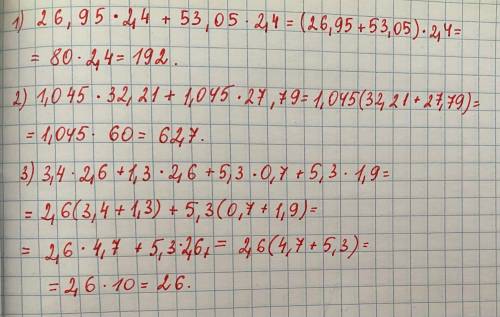 1) 26,95 · 2,4 + 53,05 · 2,4 = (26,95 + 53,05) · 2,4 =
= 80 · 2,4 = 192.
2) 1,045 · 32,21 + 1,045 · 27,79 = 1,045(32,21 + 27,79) =
= 1,045 · 60 = 62,7.
3) 3,4 · 2,6 + 1,3 · 2,6 + 5,3 · 0,7 + 5,3 · 1,9 =
= 2,6(3,4 + 1,3) + 5,3(0,7 + 1,9) =
= 2,6 · 4,7 + 5,3 · 2,6 = 2,6(4,7 + 5,3) =
= 2,6 · 10 = 26.